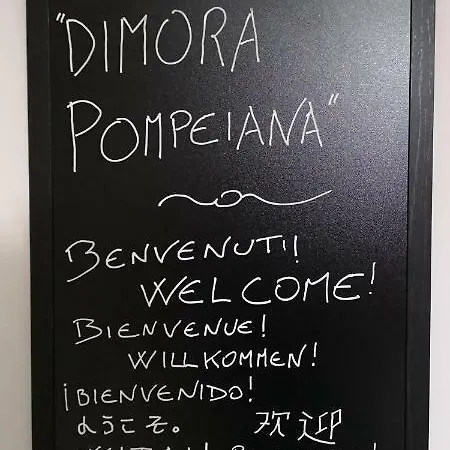 "DIMORA
POMPEIANA"
BENVENUTI!
WELCOME!
BIENVENUE!
WILLKOMMEN!
¡BIENVENIDO!
ようこそ。 欢迎